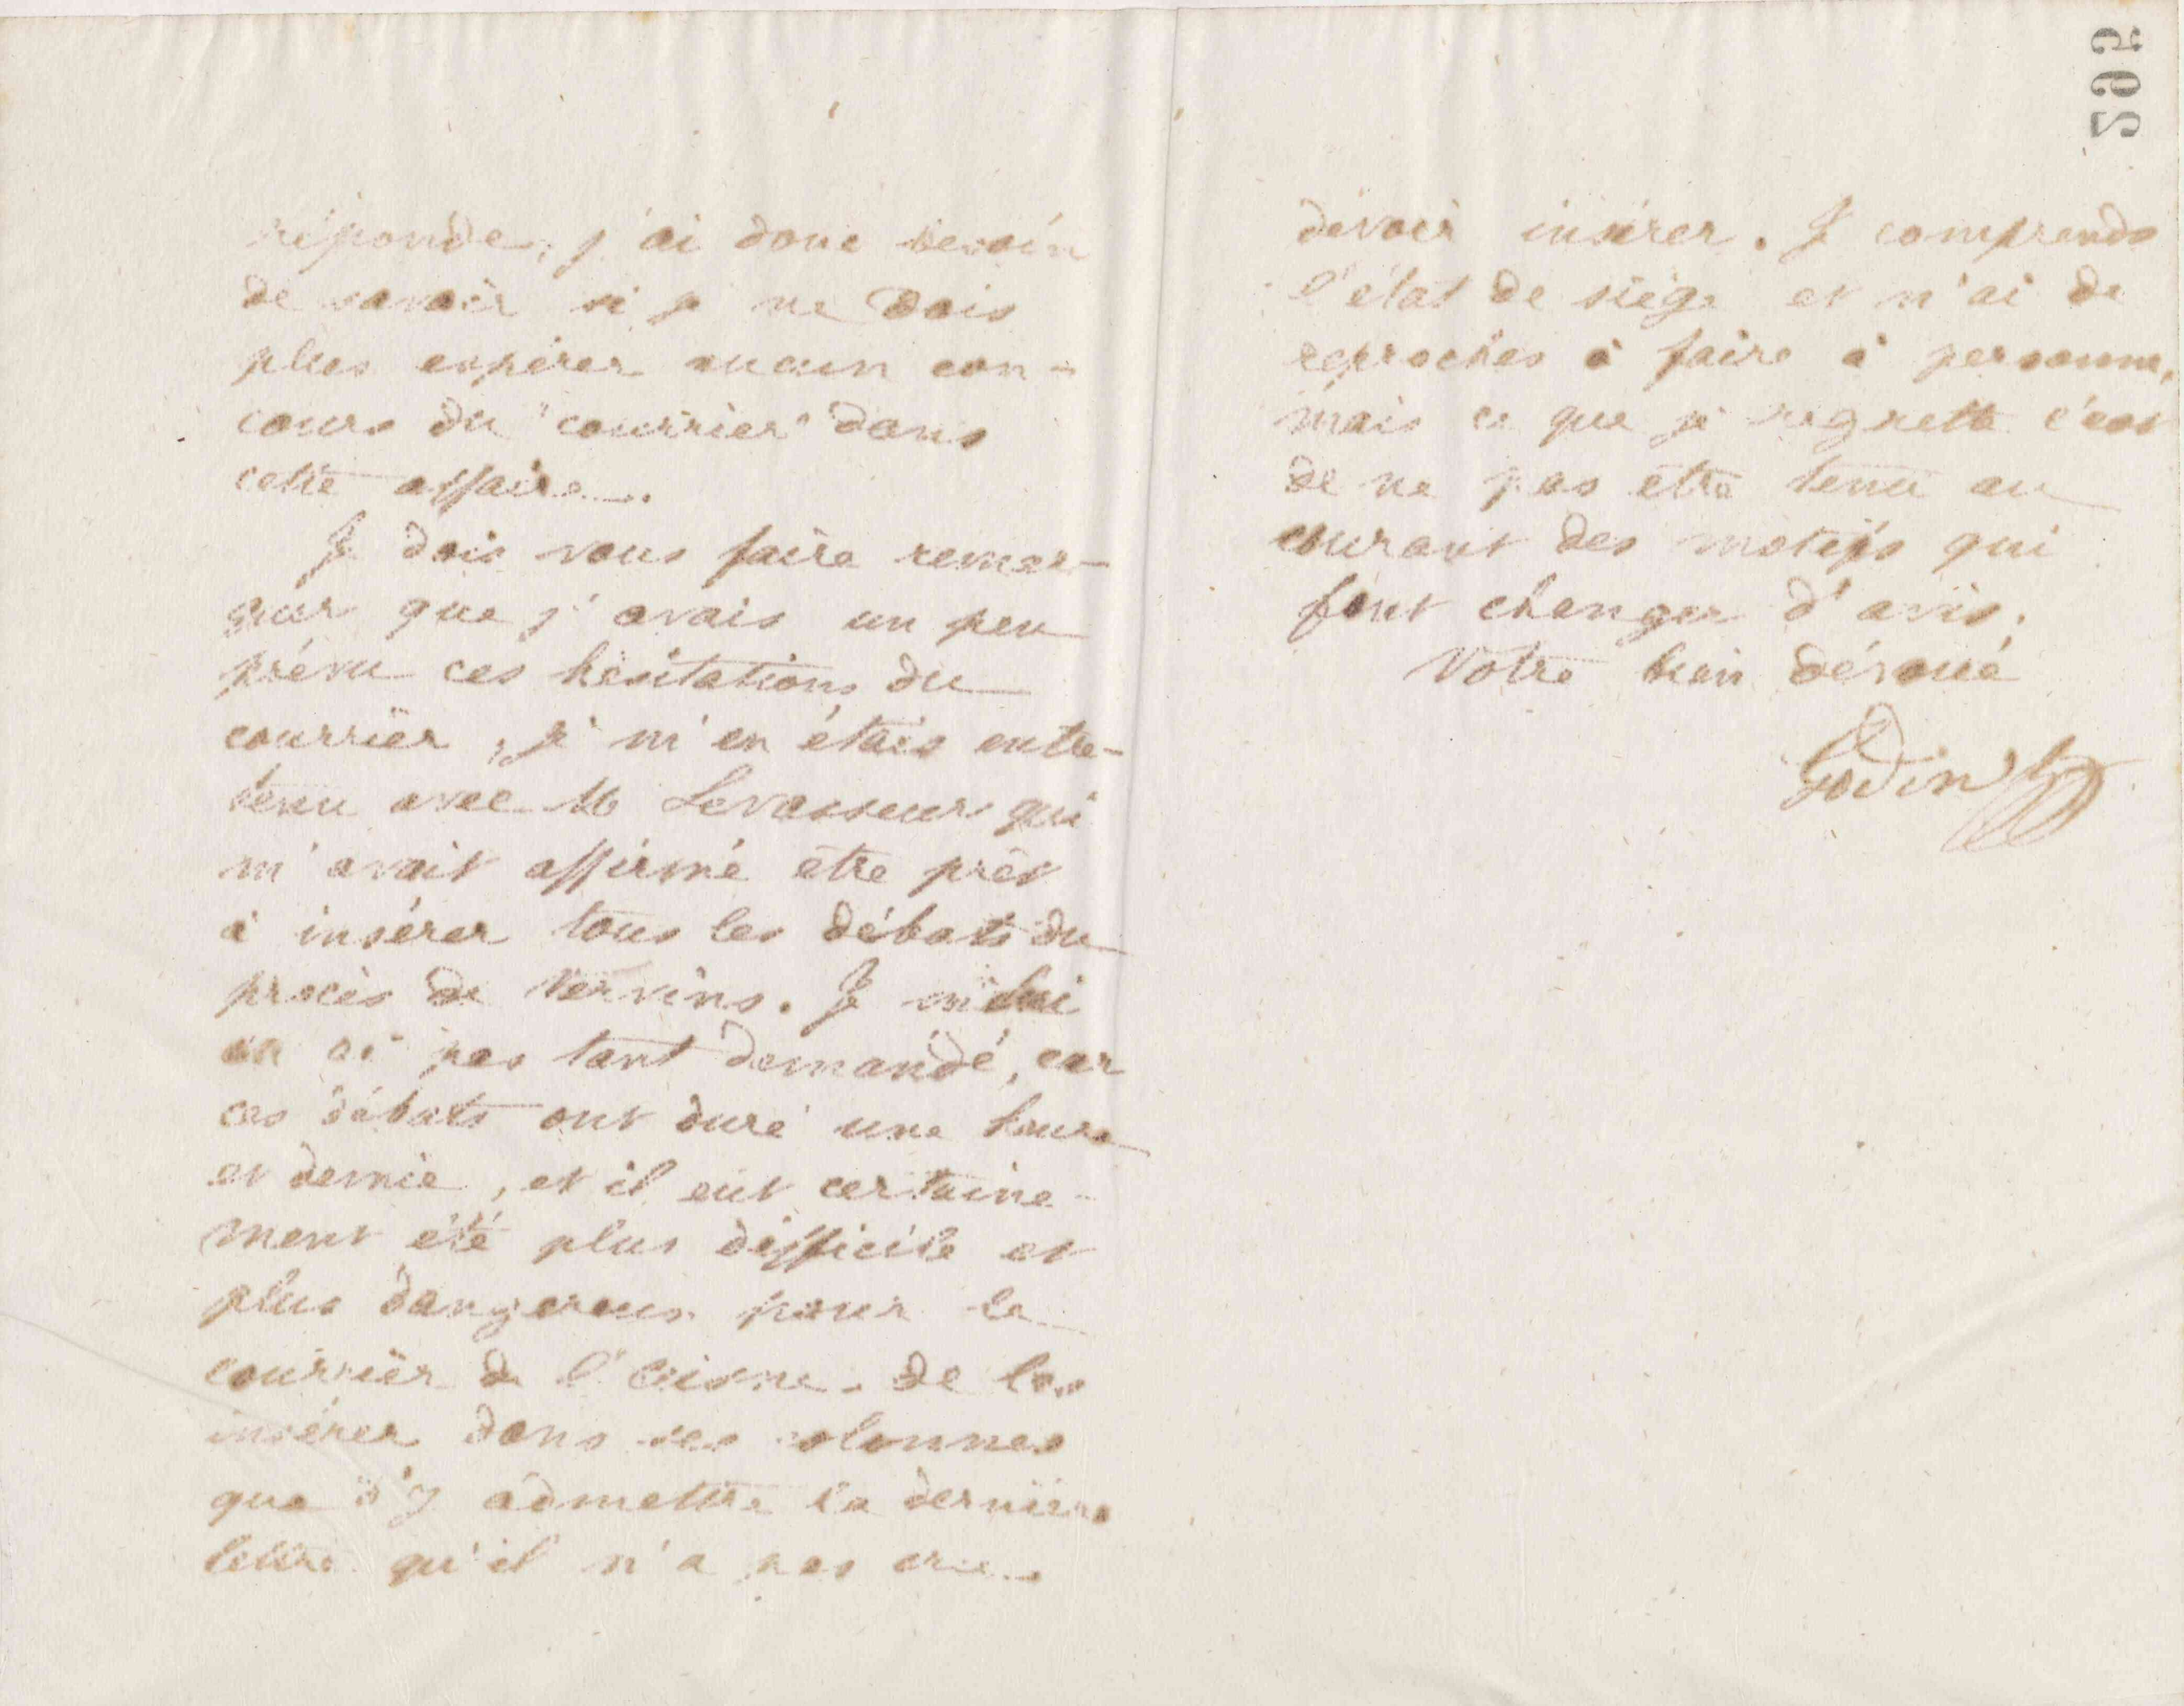 réponde; j'ai donc besoin
de savoir si je ne dois
plus espérer aucun con-
cours du "courrier" dans
cette affaire.
Je dois vous faire remar-
quer que j'avais un peu
prévu ces hésitations du
courrier, je m'en étais entre-
tenu avec M Levasseur qui
m'avait affirmé être prêt
à insérer tous les débats du
procès de Vervins. Je
en ai pas tant demandé, car
ces débats ont duré une heure
et demie, et il eut certaine-
ment été plus difficile et
plus dangereux pour le
courrier de l'Aisne. de les
insérer dans ses colonnes
que d'y admettre la dernière
lettre qu'il n'a pas cru
devoir insérer. Je comprends
l'état de siège et n'ai de
reproches à faire à personne,
mais ce que je regrette c'est
de ne pas être tenu au
courant des motifs qui
font changer d'avis.
Votre bien dévoué
Godin
295